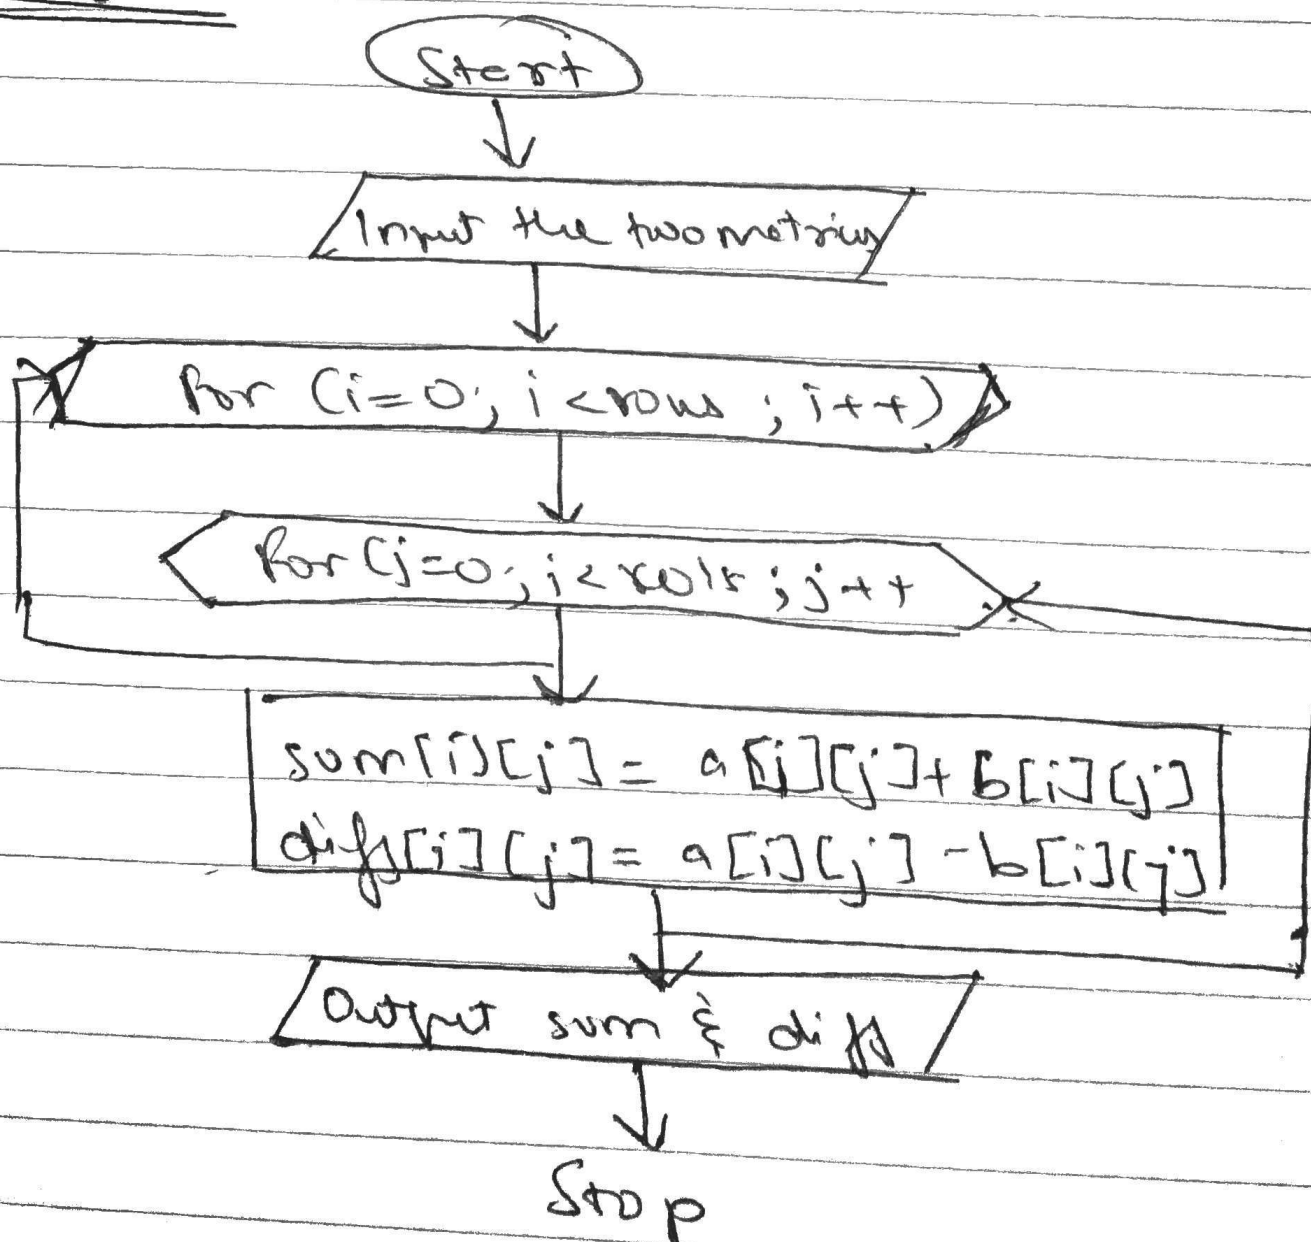 Start
Input the two metrices
for (i=0; i<rows ; i++)
for (j=0; j<cols ; j++
sum[i][j] = a[i][j]+ b[i][j]
diff[i][j] = a[i][j] - b[i][j]
Output sum & diff
Stop